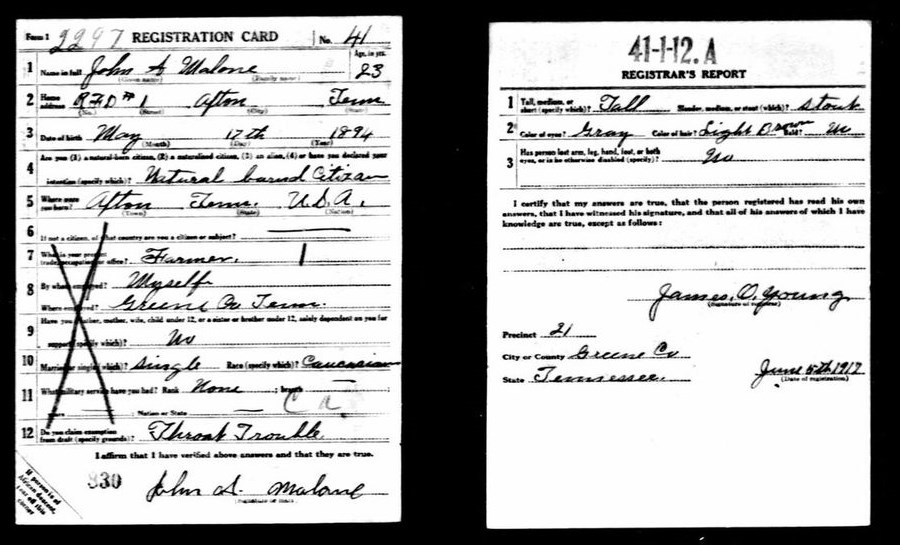 Form 1 2297 REGISTRATION CARD No. 41
1 Name in full John A Malone Age, in yrs. 23
(Given name) (Family name)
2 Home address R.F.D # 1 Afton Tenn
(No.) (Street) (City) (State)
3 Date of birth May 17th 1894
(Month) (Day) (Year)
4 Are you (1) a natural-born citizen, (2) a naturalized citizen, (3) an alien, (4) or have you declared your
intention (specify which)? Natural Citizan
5 Where were you born? Afton Tenn. U.S.A.
(Town) (State) (Nation)
6 If not a citizen, of what country are you a citizen or subject?
7 What is your present trade, occupation, or office? Farmer. 1
8 By whom employed? Myself
Where employed? Greene Co Tenn.
9 Have you a father, mother, wife, child under 12, or a sister or brother under 12, solely dependent on you for
support (specify which)? No
10 Married or single (which)? Single Race (specify which)? Caucasian
11 What military service have you had? Rank None ; branch
years ; Nation or State
12 Do you claim exemption from draft (specify grounds)? Throat Trouble
I affirm that I have verified above answers and that they are true.
If person is of African descent, tear off this corner
330 John A. Malone
41-1-12. A
REGISTRAR'S REPORT
1 Tall, medium, or short (specify which)? Tall Slender, medium, or stout (which)? Stout
2 Color of eyes? Gray Color of hair? Light Brown Bald? No
3 Has person lost arm, leg, hand, foot, or both eyes, or is he otherwise disabled (specify)? No
I certify that my answers are true, that the person registered has read his own
answers, that I have witnessed his signature, and that all of his answers of which I
have knowledge are true, except as follows:
James. O. Young
(Signature of registrar)
Precinct 21
City or County Greene Co
State Tennessee. June 5th 1917
(Date of registration)